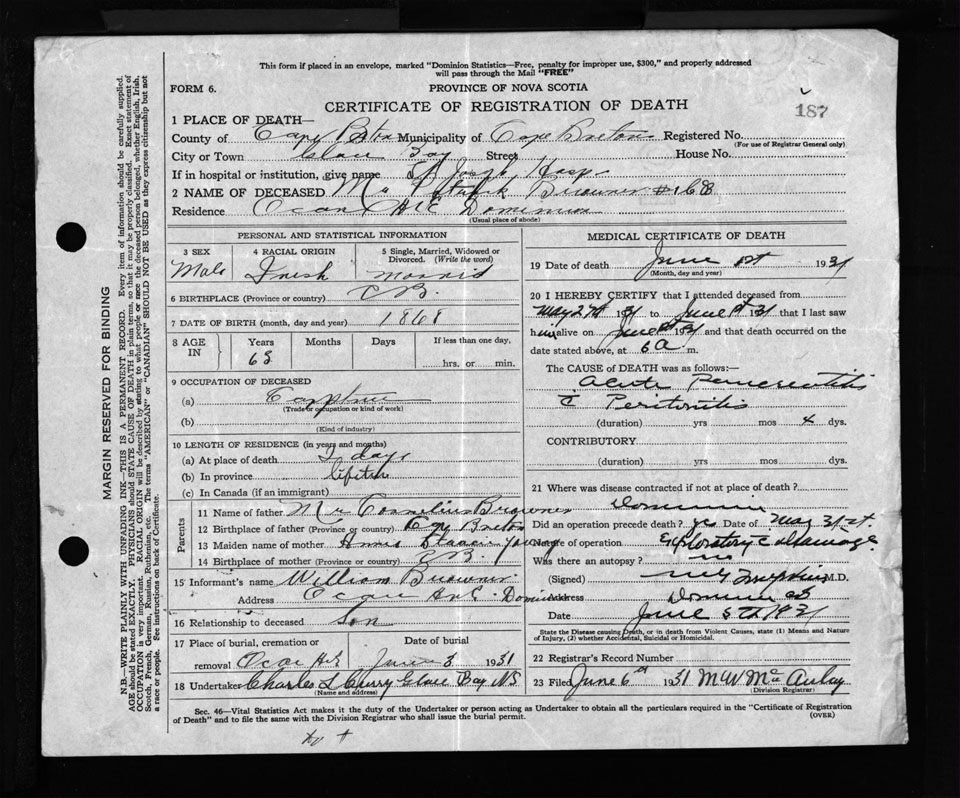 This form if placed in an envelope, marked "Dominion Statistics—Free, penalty for improper use, $300," and properly addressed
will pass through the Mail "FREE"
FORM 6.
PROVINCE OF NOVA SCOTIA
187
CERTIFICATE OF REGISTRATION OF DEATH
1 PLACE OF DEATH—
County of Cape Breton Municipality of Cape Breton Registered No.
(For use of Registrar General only)
City or Town Glace Bay Street House No.
If in hospital or institution, give name St Joseph Hosp
2 NAME OF DECEASED Mr Browner #168
Residence Ocean Ave Dominion
(Usual place of abode)
PERSONAL AND STATISTICAL INFORMATION
3 SEX
Male
4 RACIAL ORIGIN
Irish
5 Single, Married, Widowed or Divorced. (Write the word)
Married
6 BIRTHPLACE (Province or country) C B.
7 DATE OF BIRTH (month, day and year) 1868
8 AGE IN
Years Months Days If less than one day,
63 hrs. or min.
9 OCCUPATION OF DECEASED
(a) Carpenter
(Trade or occupation or kind of work)
(b)
(Kind of industry)
10 LENGTH OF RESIDENCE (in years and months)
(a) At place of death days
(b) In province lifetime
(c) In Canada (if an immigrant)
Parents
11 Name of father Mr Cornelius Browner
12 Birthplace of father (Province or country) Cape Breton
13 Maiden name of mother Young
14 Birthplace of mother (Province or country) CB.
15 Informant's name William Browner
Address Ocean Ave. Dominion
16 Relationship to deceased Son
17 Place of burial, cremation or removal Date of burial
June 3 1931
18 Undertaker Charles L Curry Glace Bay NS
(Name and address)
MEDICAL CERTIFICATE OF DEATH
19 Date of death June 1st 1931
(Month, day and year)
20 I HEREBY CERTIFY that I attended deceased from
May 27th 1931 to June 1st 1931 that I last saw
him alive on June 1st 1931 and that death occurred on
date stated above, at 6 a m.
The CAUSE OF DEATH was as follows:—
Acute Pancreatitis
c Peritonitis
(duration) yrs mos 4 dys.
CONTRIBUTORY
(duration) yrs mos dys.
21 Where was disease contracted if not at place of death?
Dominion
Did an operation precede death? yes Date of May 31st.
Name of operation Exploratory c drainage
Was there an autopsy? no
(Signed) Tompkins M.D.
Address Dominion CB
Date June 5th 1931
State the Disease causing Death, or in death from Violent Causes, state (1) Means and Nature
of Injury, (2) whether Accidental, Suicidal or Homicidal.
22 Registrar's Record Number
23 Filed June 6th 1931 M W McAulay
(Division Registrar)
Sec. 46—Vital Statistics Act makes it the duty of the Undertaker or person acting as Undertaker to obtain all the particulars required in the "Certificate of Registration
of Death" and to file the same with the Division Registrar who shall issue the burial permit.
(OVER)
MARGIN RESERVED FOR BINDING
N.B.—WRITE PLAINLY WITH UNFADING INK—THIS IS A PERMANENT RECORD. Every item of information should be carefully supplied.
AGE should be stated EXACTLY. PHYSICIANS should STATE CAUSE OF DEATH in plain terms, so that it may be properly classified. Exact statement of
OCCUPATION is very important. RACIAL ORIGIN will be described by stating to what people or race the deceased person belonged, whether English, Irish,
Scotch, French, German, Russian, Ruthenian, etc. The terms "AMERICAN" or "CANADIAN" SHOULD NOT BE USED as they express citizenship but not
a race or people. See instructions on back of Certificate.